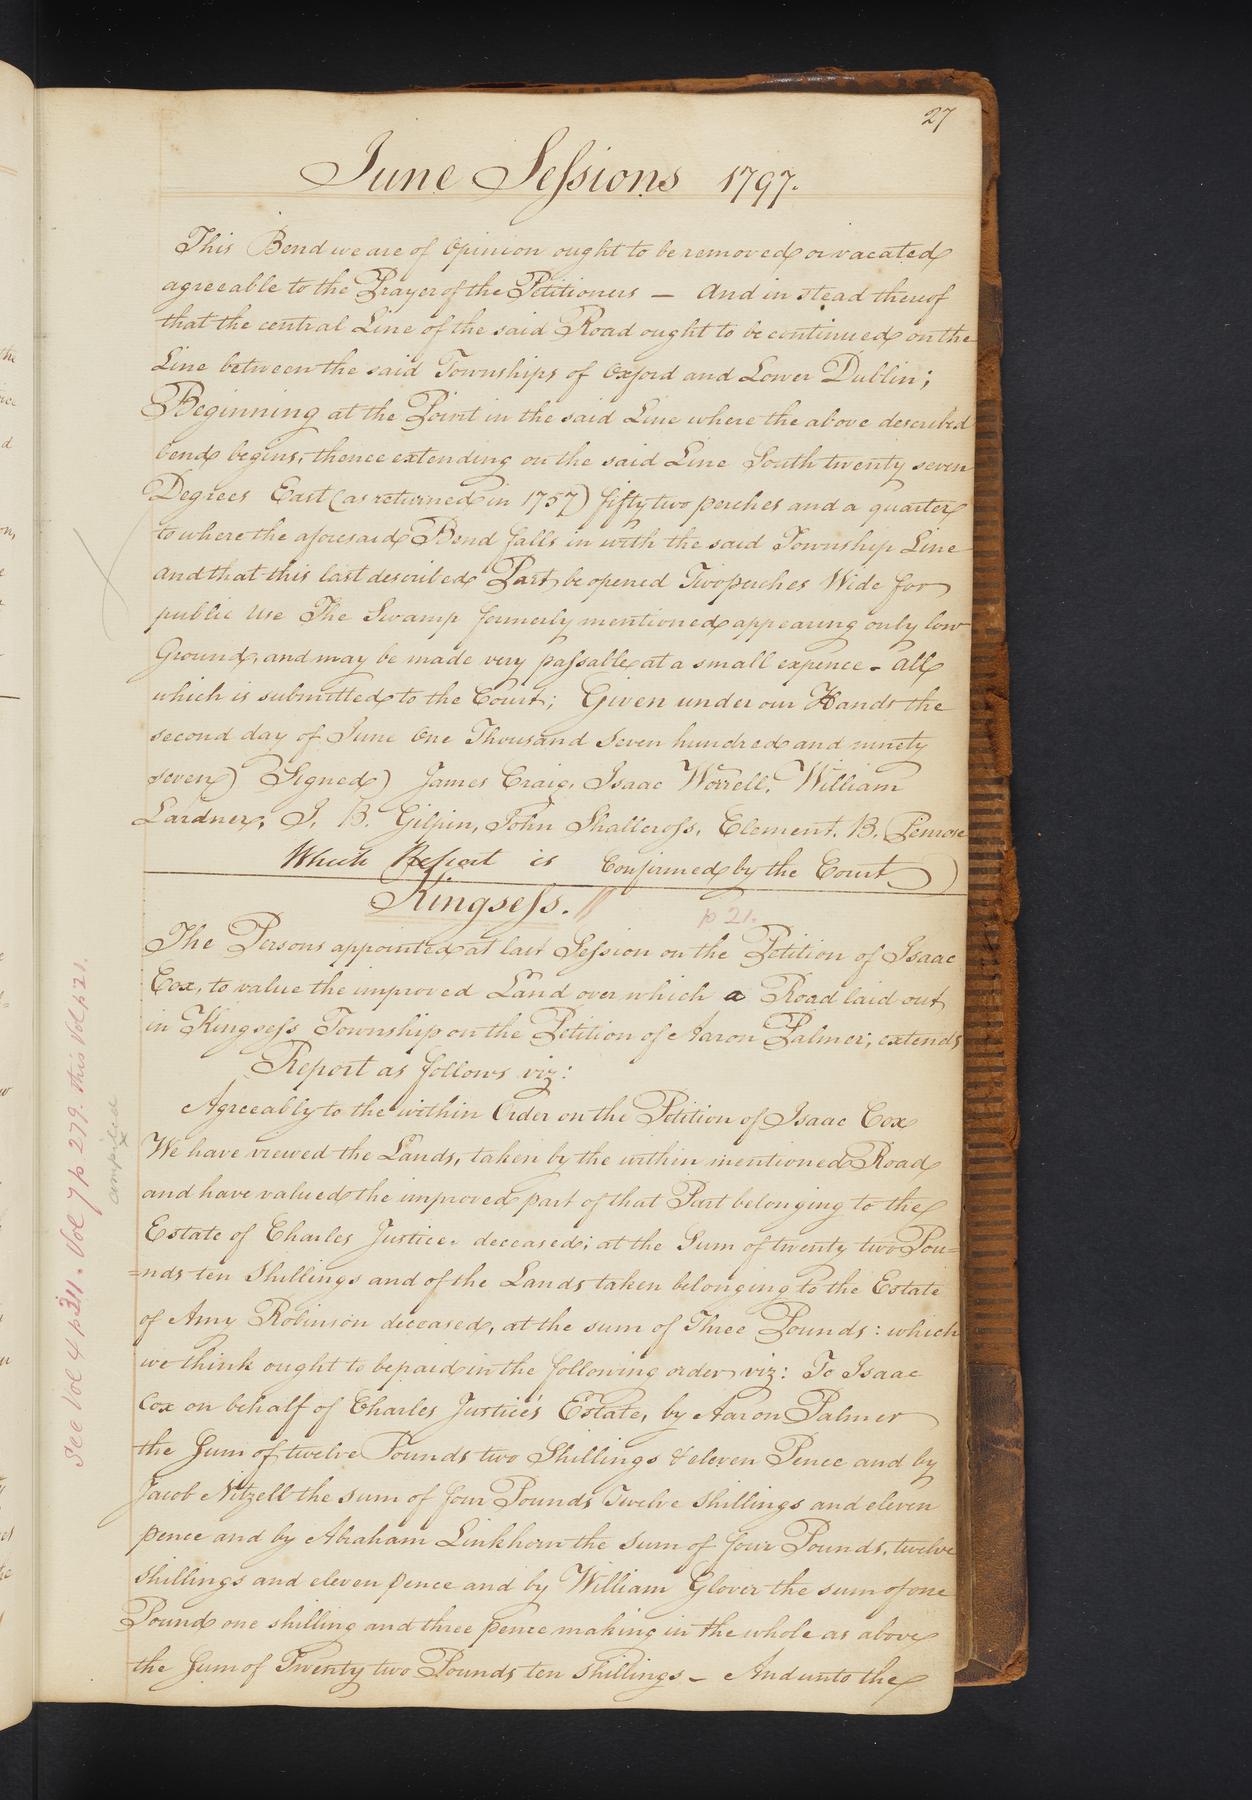 27
June Sessions 1797.
This Bend we are of Opinion ought to be removed or vacated
agreeable to the Prayer of the Petitioners — And in stead thereof
that the central Line of the said Road ought to be continued on the
Line between the said Townships of Oxford and Lower Dublin;
Beginning at the Point in the said Line where the above described
bend begins, thence extending on the said Line South twenty seven
Degrees East (as returned in 1757) fifty two perches and a quarter
to where the aforesaid Bend falls in with the said Township Line
and that this last described Part, be opened Two perches Wide for
public Use The Swamp formerly mentioned appearing only low
Ground, and may be made very passable at a small expence - all
which is submitted to the Court; Given under our Hands the
second day of June One Thousand Seven hundred and ninety
seven) Signed) James Craig, Isaac Worrell, William
Lardner, J. B. Gilpin, John Shallcross, Clement. B. Penrose
Which Report is Confirmed by the Court)
Kingsess. //
p 21.
The Persons appointed at last Session on the Petition of Isaac
Cox, to value the improved Land over which a Road laid out
in Kingsess Township on the Petition of Aaron Palmer; extends
Report as follows viz:
Agreeably to the within Order on the Petition of Isaac Cox
We have viewed the Lands, taken by the within mentioned Road
and have valued the improved part of that Part belonging to the
Estate of Charles Justice. deceased; at the Sum of twenty two Pou=
=nds ten Shillings and of the Lands taken belonging to the Estate
of Amy Robinson deceased, at the sum of Three Pounds: which
we think ought to be paid in the following order viz: To Isaac
Cox on behalf of Charles Justice's Estate, by Aaron Palmer
the Sum of twelve Pounds two Shillings & eleven Pence and by
Jacob Nitzell the sum of four Pounds Twelve Shillings and eleven
pence and by Abraham Linkhorn the Sum of four Pounds, twelve
shillings and eleven pence and by William Glover the sum of one
Pound one shilling and three pence making in the whole as above
the Sum of Twenty two Pounds ten Shillings — And unto the
See Vol 4 p 311. Vol 7 p 279. this Vol, p 21.
compiled